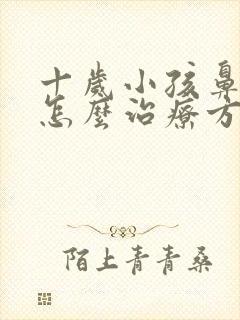 十歲小孩鼻
怎麼治療方
陌上青青桑